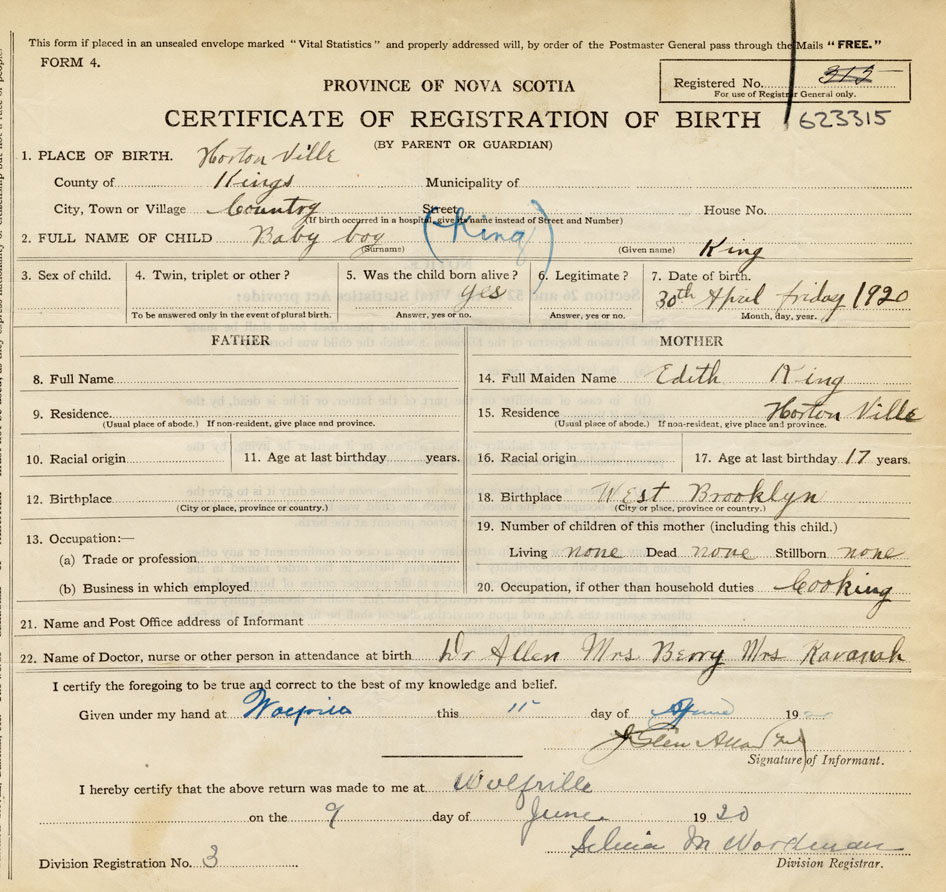 This form if placed in an unsealed envelope marked "Vital Statistics" and properly addressed will, by order of the Postmaster General pass through the Mails "FREE."
FORM 4.
Registered No. 315
For use of Registrar General only.
PROVINCE OF NOVA SCOTIA
CERTIFICATE OF REGISTRATION OF BIRTH
623315
(BY PARENT OR GUARDIAN)
1. PLACE OF BIRTH. Horton Ville
County of Kings Municipality of
City, Town or Village Country Street House No.
(If birth occurred in a hospital, give its name instead of Street and Number)
2. FULL NAME OF CHILD Baby boy (King) King
(Surname) (Given name)
3. Sex of child. 4. Twin, triplet or other? 5. Was the child born alive? 6. Legitimate? 7. Date of birth.
yes 30th April friday 1920
To be answered only in the event of plural birth. Answer, yes or no. Answer, yes or no. Month, day, year.
FATHER MOTHER
8. Full Name 14. Full Maiden Name Edith King
9. Residence 15. Residence Horton Ville
(Usual place of abode.) If non-resident, give place and province. (Usual place of abode.) If non-resident, give place and province.
10. Racial origin 11. Age at last birthday years. 16. Racial origin 17. Age at last birthday 17 years.
12. Birthplace 18. Birthplace West Brooklyn
(City or place, province or country.) (City or place, province or country.)
13. Occupation:— 19. Number of children of this mother (including this child.)
(a) Trade or profession Living none Dead none Stillborn none
(b) Business in which employed 20. Occupation, if other than household duties Cooking
21. Name and Post Office address of Informant
22. Name of Doctor, nurse or other person in attendance at birth Dr Allen Mrs Berry Mrs Kavanah
I certify the foregoing to be true and correct to the best of my knowledge and belief.
Given under my hand at this day of 19
Signature of Informant.
I hereby certify that the above return was made to me at Wolfville
on the 9 day of June 1920
Division Registration No. 3 M Wordman
Division Registrar.